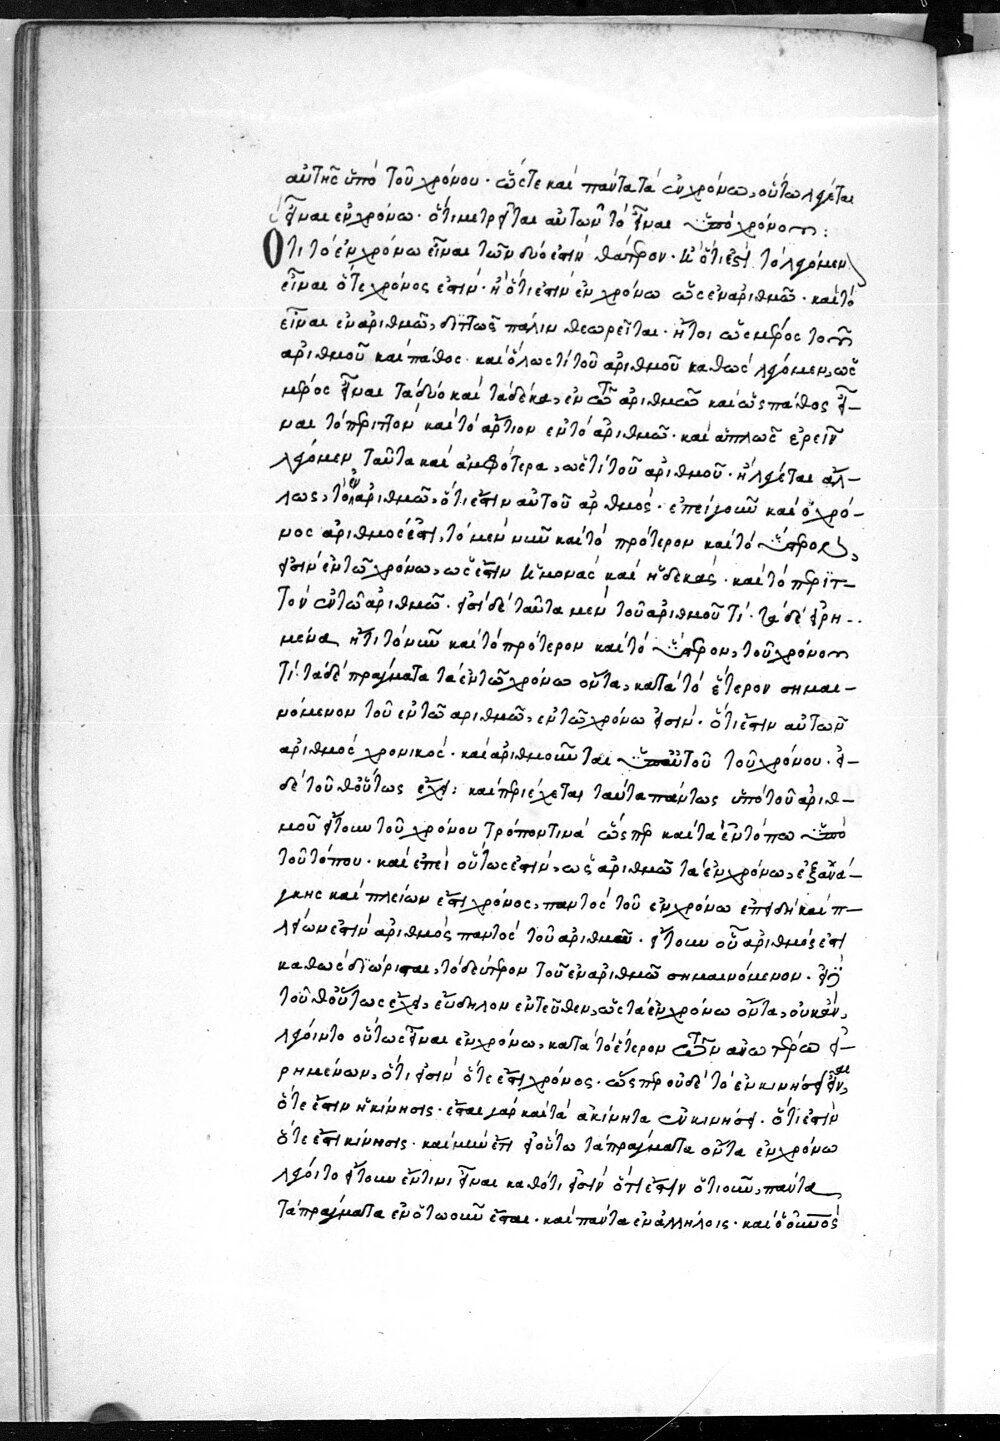 αὐτῆς ὑπὸ τοῦ χρόνου· ὥςτε καὶ πάντα τὰ ἐν χρόνω, οὕτω λέγεται
εἶναι ἐν χρόνω· ὅτι μετρεῖται αὐτῶν τὸ εἶναι ὑπὸ χρόνου:
Ὅτι τὸ ἐν χρόνω εἶναι τῶν δύο ἐστὶν θάτερον· ἢ ὅτι ἐστὶ τὸ λεγόμεν
εἶναι ὅτε χρόνος ἐστίν· ἢ ὅτι ἐστὶν ἐν χρόνω ὡς ἐν ἀριθμῶ· καὶ τὸ
εἶναι ἐν ἀριθμῶ, διττῶς πάλιν θεωρεῖται· ἤτοι ὡς μέρος τοῦ
ἀριθμοῦ καὶ πάθος· καὶ ὅλως τὶ τοῦ ἀριθμοῦ καθὼς λέγομεν, ὡς
μέρος εἶναι τὰ δύο καὶ τὰ δέκα, ἐν τῶ ἀριθμῶ καὶ ὡς πάθος εἶ-
ναι τὸ περιττὸν καὶ τὸ ἄρτιον ἐν τὸ ἀριθμῶ· καὶ ἁπλῶς ἐρεῖν
λέγομεν ταῦτα καὶ ἀμφότερα, ὡς τὶ τοῦ ἀριθμοῦ· ἢ λέγεται ἄλ-
λως, τὸ ἐν ἀριθμῶ, ὅτι ἐστὶν αὐτοῦ ἀριθμός· ἐπεὶ γοῦν καὶ ὁ χρό-
νος ἀριθμός ἐστι, τὸ μὲν νῦν καὶ τὸ πρότερον καὶ τὸ ὕστερον,
εἰσὶν ἐν τῶ χρόνω, ὡς ἐστὶν ἡ μονὰς καὶ ἡ δεκάς· καὶ τὸ περιτ-
τὸν ἐν τῶ ἀριθμῶ· εἰσὶ δὲ ταῦτα μὲν τοῦ ἀριθμοῦ τί· τὰ δὲ εἰρη-
μένα ἤτι τὸ νῦν καὶ τὸ πρότερον καὶ τὸ ὕστερον, τοῦ χρόνου
τί· τὰ δὲ πράγματα τὰ ἐν τῶ χρόνω ὄντα, κατὰ τὸ ἕτερον σημαι-
νόμενον τοῦ ἐν τῶ ἀριθμῶ, ἐν τῶ χρόνω εἰσίν· ὅτι ἐστὶν αὐτῶν
ἀριθμὸς χρονικός· καὶ ἀριθμοῦνται ὑπ' αὐτοῦ τοῦ χρόνου· εἰ
δὲ τοῦθ' οὕτως ἔχει: καὶ περιέχεται ταῦτα πάντως ὑπὸ τοῦ ἀριθ-
μοῦ ἤτουν τοῦ χρόνου τρόπον τινὰ ὥςπερ καὶ τὰ ἐν τόπω ὑπὸ
τοῦ τόπου· καὶ ἐπεὶ οὕτως ἐστίν, ὡς ἀριθμῶ τὰ ἐν χρόνω, ἐξ ἀνά-
γκης καὶ πλείων ἐστὶ χρόνος, παντὸς τοῦ ἐν χρόνω ἐπειδὴ καὶ π-
λείων ἐστὶν ἀριθμὸς παντὸς τοῦ ἀριθμοῦ· ἤτουν οὗ ἀριθμός ἐστι
καθὼς διώρισται, τὸ δεύτερον τοῦ ἐν ἀριθμῶ σημαινόμενον· εἰ δὲ
τοῦθ' οὕτως ἔχει, εὔδηλον ἐντεῦθεν, ὡς τὰ ἐν χρόνω ὄντα, οὐκ ἂν,
λέγοιντο οὕτως εἶναι ἐν χρόνω, κατὰ τὸ ἕτερον τῶν ἄνω που εἰ-
ρημένων, ὅτι εἰσὶν ὅτε ἐστὶ χρόνος· ὥςπερ οὐδὲ τὸ ἐν κινήσει εἶναι,
ὅτε ἐστὶν ἡ κίνησις· ἔσται γὰρ καὶ τὰ ἀκίνητα ἐν κινήσει· ὅτι ἐστὶν
ὅτε ἐστὶ κίνησις· καὶ νῦν ἔτι εἰ οὕτω τὰ πράγματα ὄντα ἐν χρόνω
λέγοιτο ἤτουν ἔν τινι εἶναι καθότι εἰσὶν ὅτι ἐστὶν ὁτιοῦν, πάντα
τὰ πράγματα ἐν ὁτωοῦν ἔσται· καὶ πάντα ἐν ἀλλήλοις· καὶ ὁ οὐρανὸς